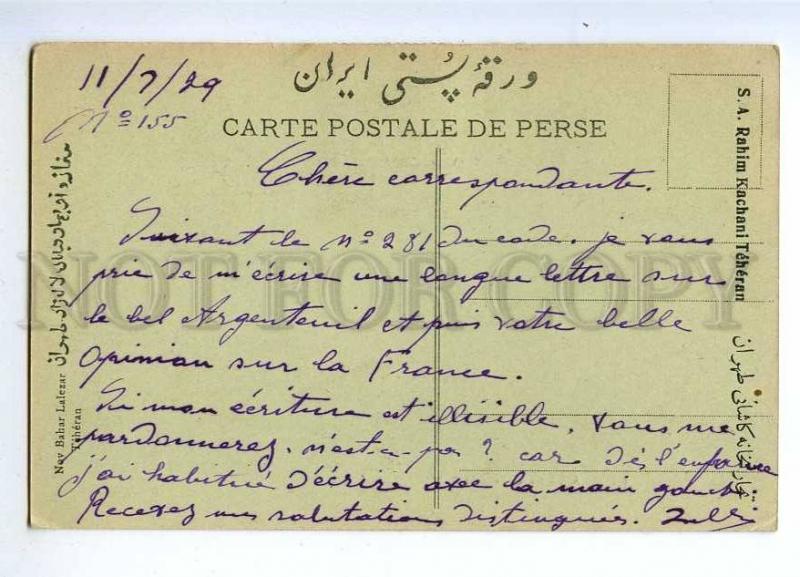 11/7/29
Nº 155
ورقهٔ پُستی ایران
CARTE POSTALE DE PERSE
Chère correspondante.
Suivant le Nº 281 du code, je vous
prie de m'écrire une longue lettre sur
le bel Argenteuil et puis votre belle
opinion sur la France.
Si mon écriture est illisible, vous me
pardonnerez, n'est-ce-pas ? car dès l'enfance
j'ai habitué d'écrire avec la main gauche.
Recevez mes salutations distinguées.
S. A. Rahim Kachani Téhéran
تجارتخانه کاشانی طهران
Nev Bahar Lalezar
Téhéran
NOT FOR COPY